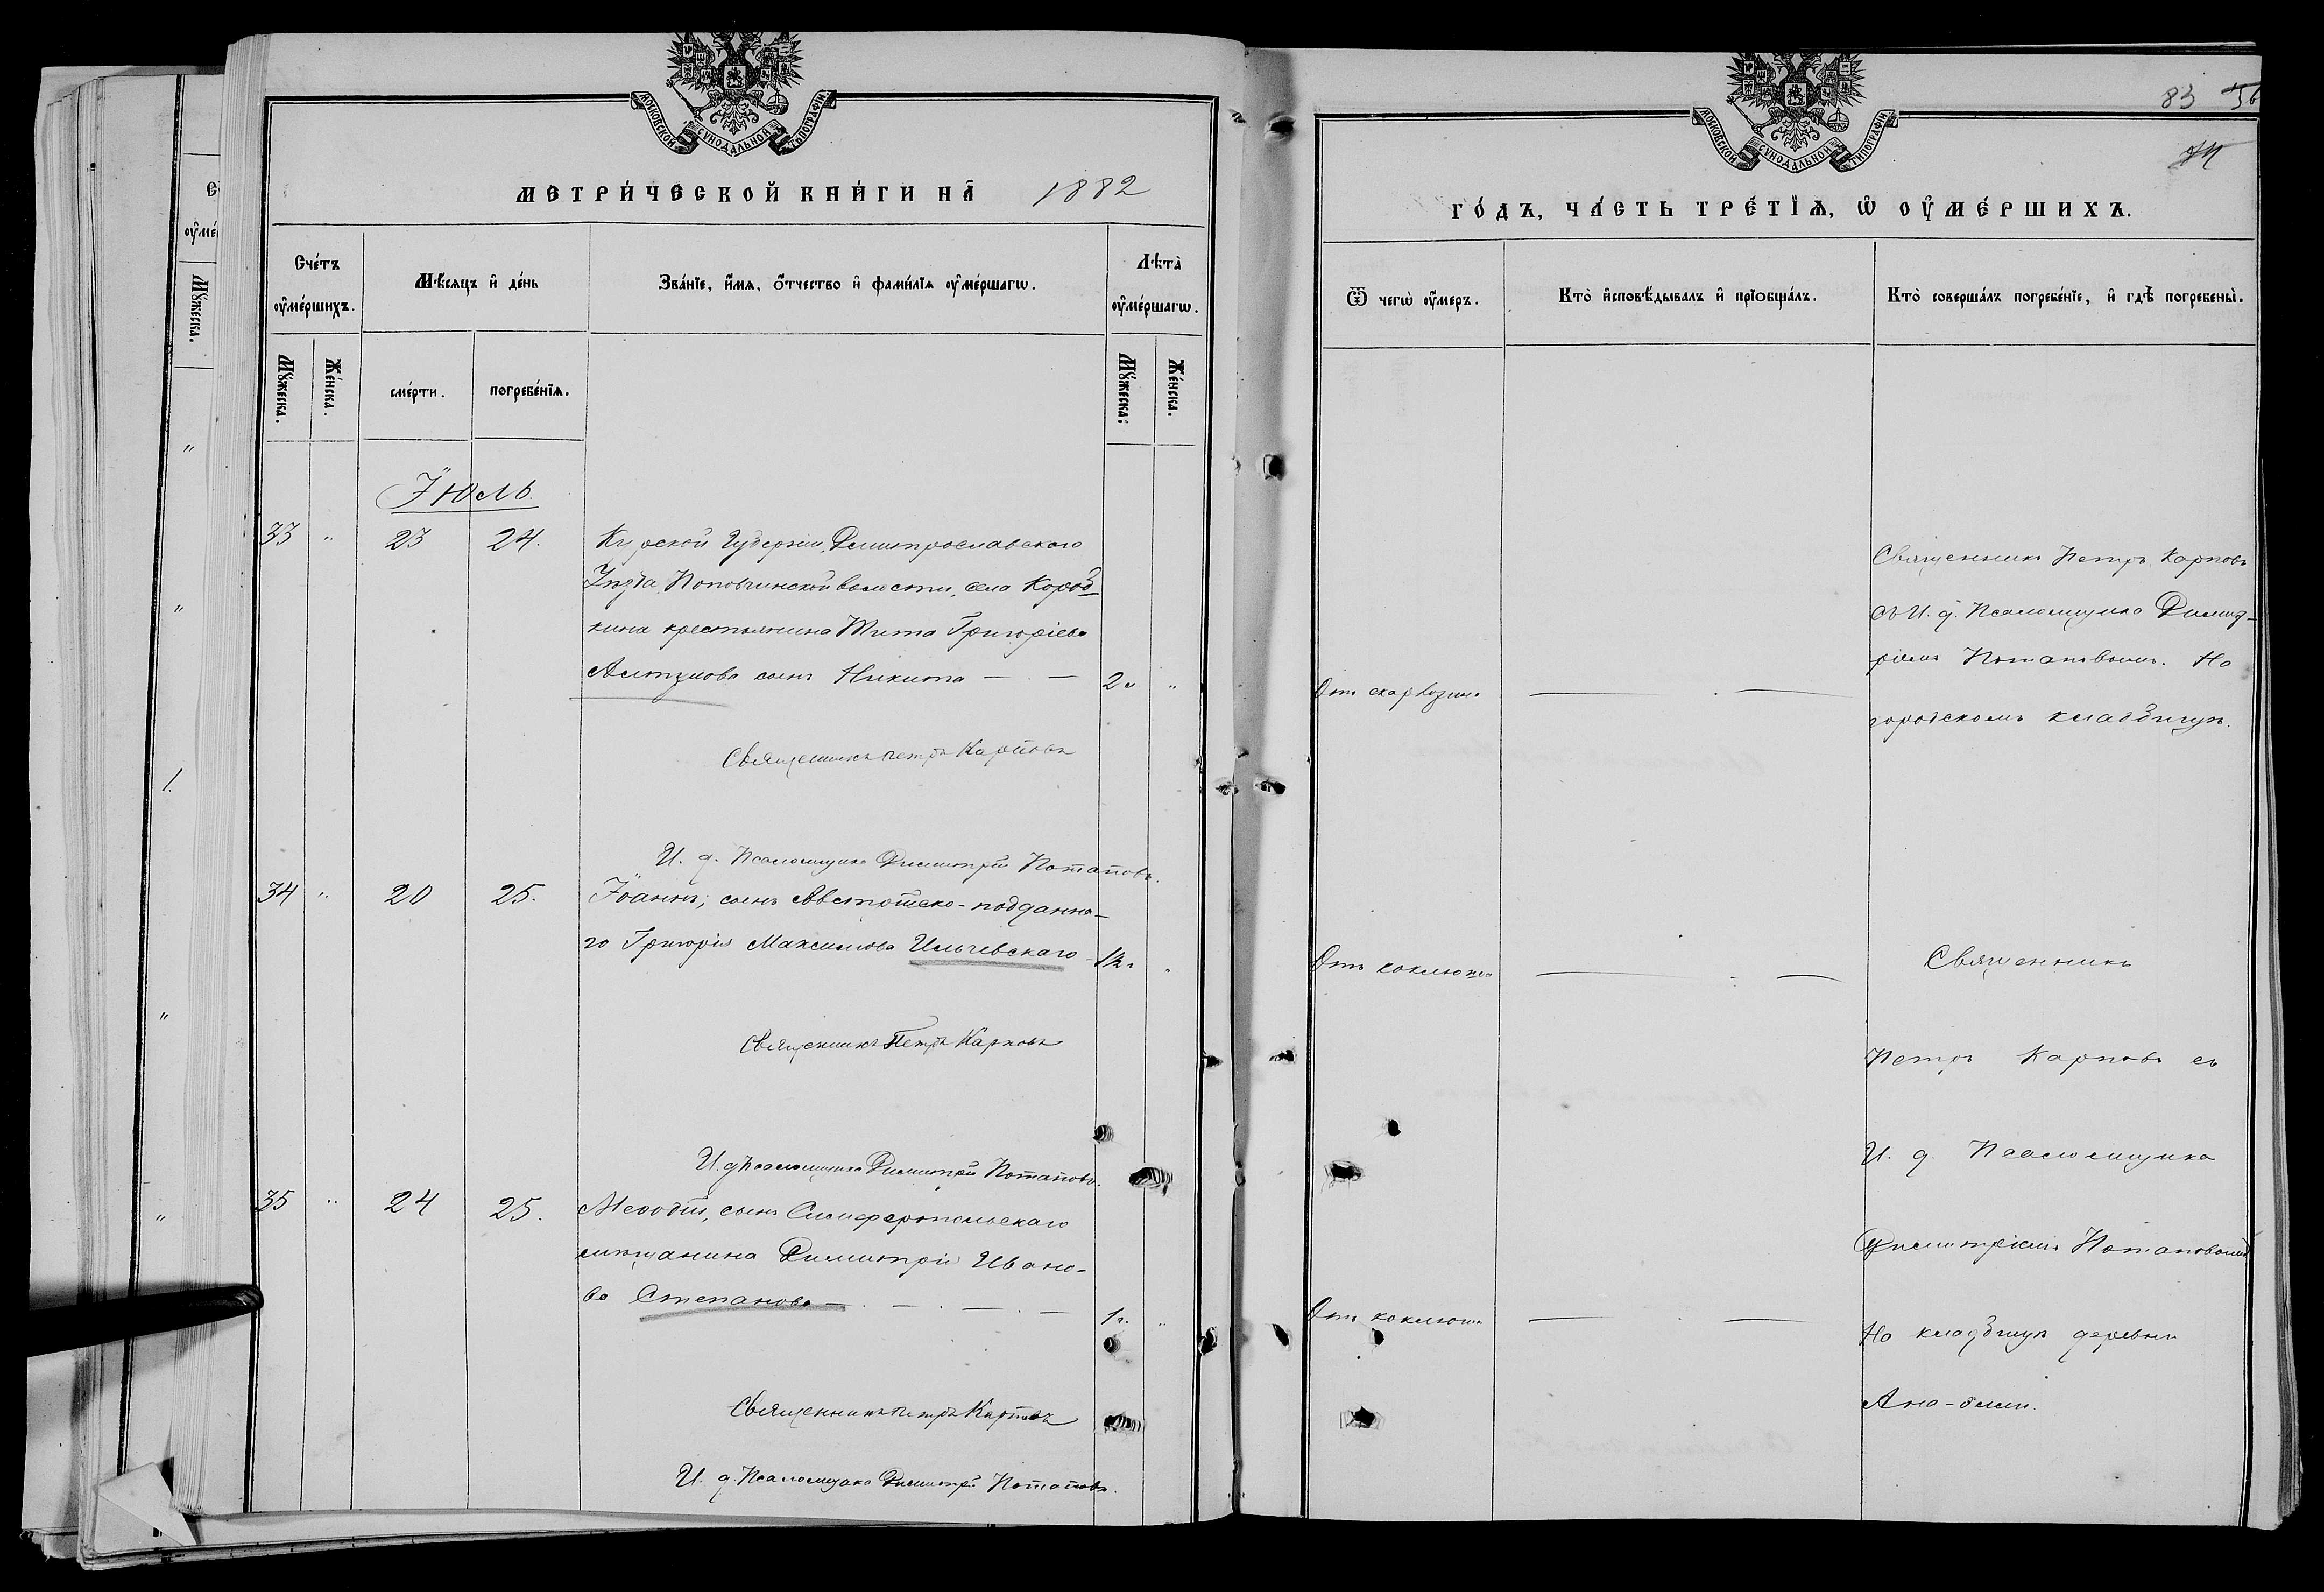 МОСКОВСКОЙ СУНОДАЛЬНОЙ ТИПОГРАФІИ
МЕТРИ́ЧЕСКОЙ КНИ́ГИ НА̀ 1882
Сче́тъ оу҆ме́ршихъ.
Мѣ́сяцъ и҆ де́нь
Зва́нїе, и҆́мя, ѻ҆́тчество и҆ фами́лїя оу҆ме́ршагѡ.
Лѣта̀ оу҆ме́ршагѡ.
Мꙋ́жеска.
Же́нска.
сме́рти.
погребе́нїѧ.
Мꙋ́жеска.
Же́нска.
Іюль.
33 " 23 24.
Курской Губерніи, Дмитрославскаго
Уѣзда, волости, села Кород-
кина крестьянина Тита Григоріева
сынъ Никита — . — 2. "
Священникъ Петръ Карповъ
И. д. Псаломщика Димитрій Потаповъ.
34 " 20 25.
Іоаннъ, сынъ Австрійско-подданна-
го Григорія Максимова Ильчевскаго 1/2 г. "
Священникъ Петръ Карповъ
И. д. Псаломщика Димитрій Потаповъ.
35 " 24 25.
Меѳодій, сынъ Симферопольскаго
мѣщанина Димитрія Ивано-
ва Степанова — . — . — . — 1 г. "
Священникъ Петръ Карповъ
И. д. Псаломщика Димитрій Потаповъ.
83 56
МОСКОВСКОЙ СУНОДАЛЬНОЙ ТИПОГРАФІИ
ГО́ДЪ, ЧА́СТЬ ТРЕ́ТЇѦ, Ѡ҆ ОУ҆МЕ́РШИХЪ.
Ѿ чегѡ̀ оу҆́меръ.
Кто̀ и҆сповѣ́дывалъ и҆ прїобща́лъ.
Кто̀ соверша́лъ погребе́нїе, и҆ гдѣ̀ погребены̀.
Отъ скарлатины
Священникъ Петръ Карповъ
съ И. д. Псаломщика Димит-
ріемъ Потаповымъ. На
городскомъ кладбищѣ.
Отъ коклюша
Священникъ
Петръ Карповъ съ
И. д. Псаломщика
Димитріемъ Потаповымъ
Отъ коклюша
На кладбищѣ деревни